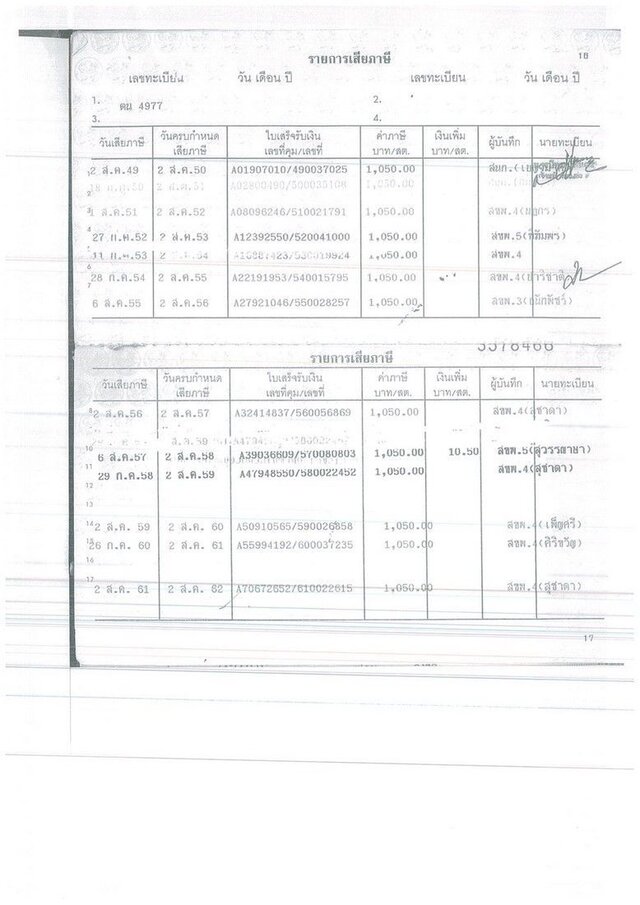 รายการเสียภาษี
16
เลขทะเบียน วัน เดือน ปี เลขทะเบียน วัน เดือน ปี
1. ตม 4977 2.
3. 4.
วันเสียภาษี วันครบกำหนดเสียภาษี ใบเสร็จรับเงิน เลขที่คุม/เลขที่ ค่าภาษี บาท/สต. เงินเพิ่ม บาท/สต. ผู้บันทึก นายทะเบียน
2 ส.ค.49 2 ส.ค.50 A01907010/490037025 1,050.00
1,050.00
ส.ค.51 2 ส.ค.52 A08096246/510021791 1,050.00 สขพ.4
27 ก.ค.52 2 ส.ค.53 A12392550/520041000 1,050.00 สขพ.5
11 ก.ค.53 1,050.00 สขพ.4
28 ก.ค.54 2 ส.ค.55 A22191953/540015795 1,050.00 สขพ.4
6 ส.ค.55 2 ส.ค.56 A27921046/550028257 1,050.00 สขพ.3
3378466
รายการเสียภาษี
วันเสียภาษี วันครบกำหนดเสียภาษี ใบเสร็จรับเงิน เลขที่คุม/เลขที่ ค่าภาษี บาท/สต. เงินเพิ่ม บาท/สต. ผู้บันทึก นายทะเบียน
8 2 ส.ค.56 2 ส.ค.57 A32414837/560056869 1,050.00 สขพ.4(สุชาดา)
10 6 ส.ค.57 2 ส.ค.58 A39036609/570080803 1,050.00 10.50 สขพ.5(สุวรรณาษา)
11 29 ก.ค.58 2 ส.ค.59 A47948550/580022452 1,050.00 สขพ.4(สุชาดา)
12
13
14 2 ส.ค. 59 2 ส.ค. 60 A50910565/590026858 1,050.00 สขพ.4(เพ็ญศรี)
15 26 ก.ค. 60 2 ส.ค. 61 A55994192/600037235 1,050.00 สขพ.4(ศิริขวัญ)
16
17 2 ส.ค. 61 2 ส.ค. 62 A70672652/610022615 1,050.00 สขพ.4(สุชาดา)
17